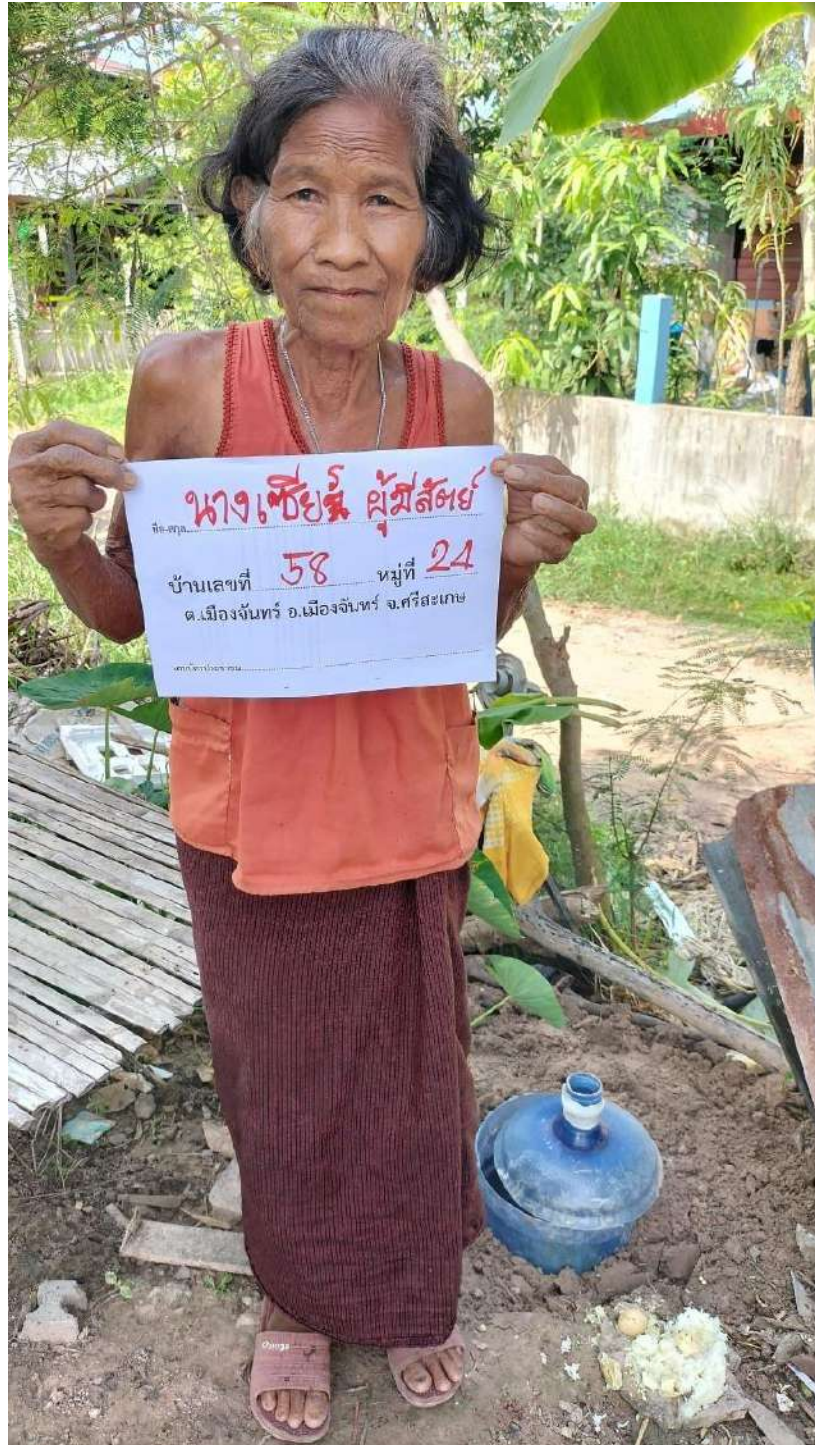 ชื่อ-สกุล นางเซียร์ ผู้มีสัตย์
บ้านเลขที่ 58 หมู่ที่ 24
ต.เมืองจันทร์ อ.เมืองจันทร์ จ.ศรีสะเกษ